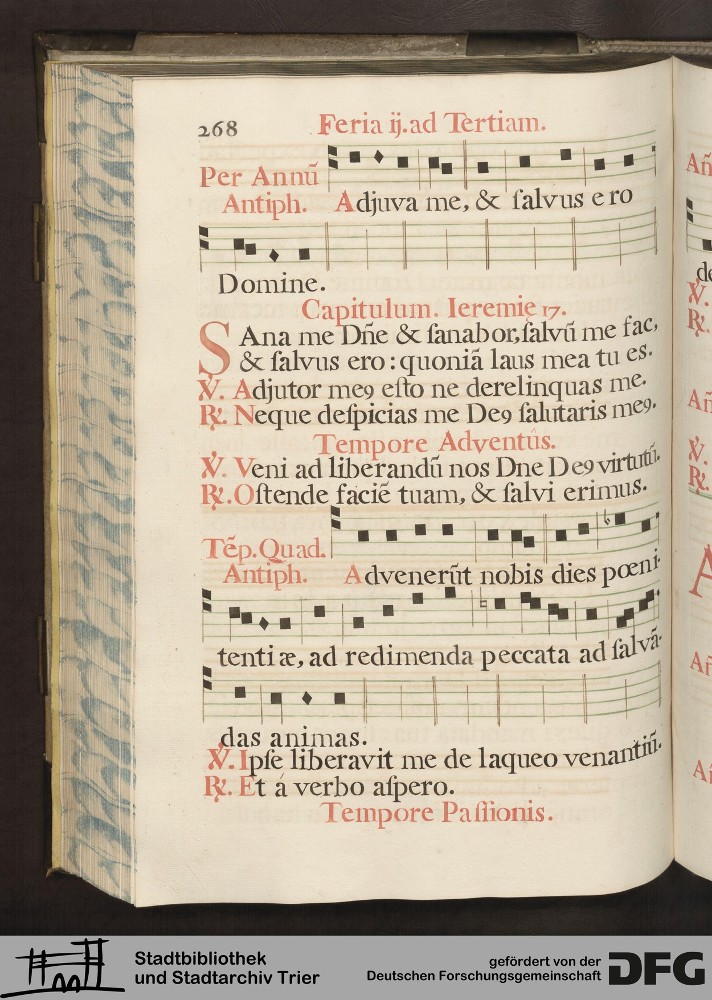 268 Feria ij. ad Tertiam.
Per Annũ
Antiph. Adjuva me, & ſalvus ero
Domine.
Capitulum. Ieremię 17.
SAna me Dñe & ſanabor, ſalvũ me fac,
& ſalvus ero: quoniã laus mea tu es.
℣. Adjutor meꝯ eſto ne derelinquas me.
℟. Neque deſpicias me Deꝯ ſalutaris meꝯ.
Tempore Adventûs.
℣. Veni ad liberandũ nos Dne Deꝯ virtutũ.
℟. Oſtende faciẽ tuam, & ſalvi erimus.
Tẽp. Quad.
Antiph. Advenerũt nobis dies pœni-
tentiæ, ad redimenda peccata ad ſalvã-
das animas.
℣. Ipſe liberavit me de laqueo venantiũ.
℟. Et á verbo aſpero.
Tempore Paſſionis.
Añ
de
℣.
℟.
Añ
℣.
℟.
A
Añ
Añ
Stadtbibliothek
und Stadtarchiv Trier
gefördert von der
Deutschen Forschungsgemeinschaft
DFG